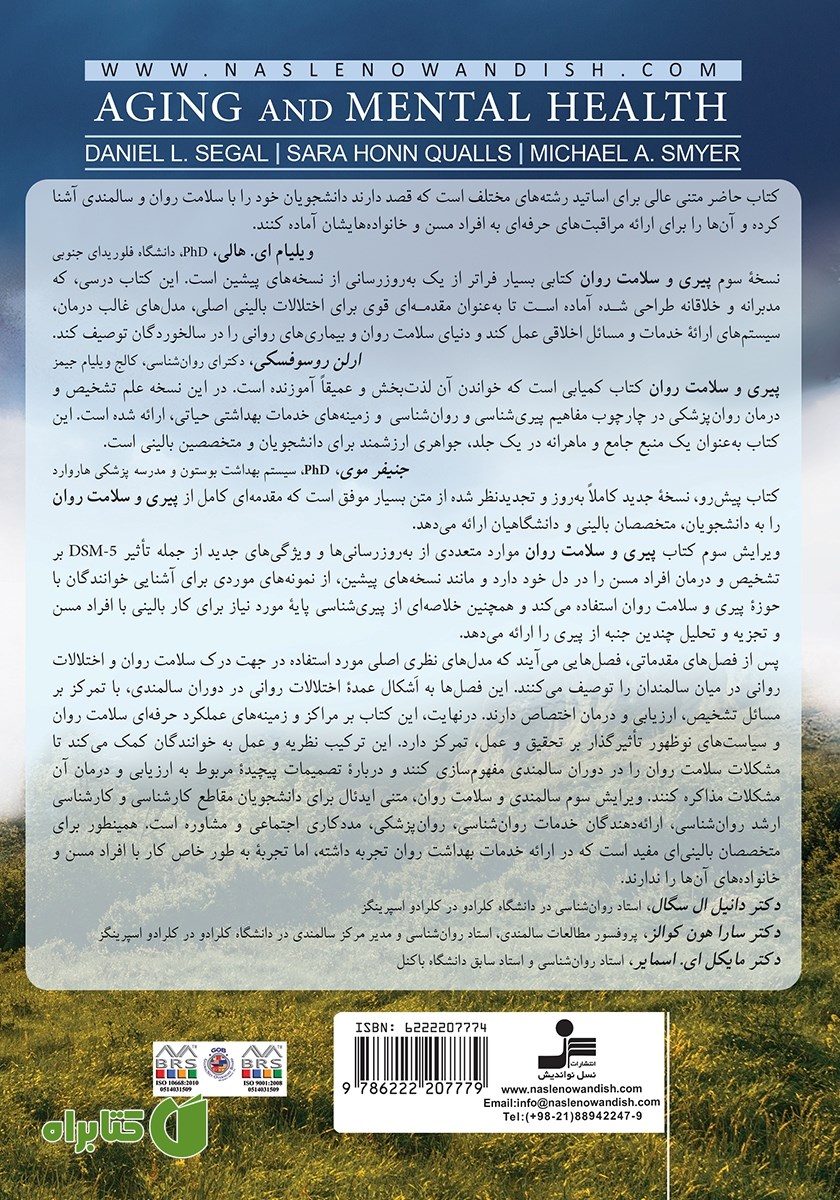 WWW.NASLENOWANDISH.COM
AGING AND MENTAL HEALTH
DANIEL L. SEGAL | SARA HONN QUALLS | MICHAEL A. SMYER
کتاب حاضر متنی عالی برای اساتید رشته‌های مختلف است که قصد دارند دانشجویان خود را با سلامت روان و سالمندی آشنا
کرده و آن‌ها را برای ارائه مراقبت‌های حرفه‌ای به افراد مسن و خانواده‌هایشان آماده کنند.
ویلیام ای. هالی، PhD، دانشگاه فلوریدای جنوبی
نسخهٔ سوم پیری و سلامت روان کتابی بسیار فراتر از یک به‌روزرسانی از نسخه‌های پیشین است. این کتاب درسی، که
مدبرانه و خلاقانه طراحی شده آماده است تا به‌عنوان مقدمه‌ای قوی برای اختلالات بالینی اصلی، مدل‌های غالب درمان،
سیستم‌های ارائهٔ خدمات و مسائل اخلاقی عمل کند و دنیای سلامت روان و بیماری‌های روانی را در سالخوردگان توصیف کند.
ارلن روسوفسکی، دکترای روان‌شناسی، کالج ویلیام جیمز
پیری و سلامت روان کتاب کمیابی است که خواندن آن لذت‌بخش و عمیقاً آموزنده است. در این نسخه علم تشخیص و
درمان روان‌پزشکی در چارچوب مفاهیم پیری‌شناسی و روان‌شناسی و زمینه‌های خدمات بهداشتی حیاتی، ارائه شده است. این
کتاب به‌عنوان یک منبع جامع و ماهرانه در یک جلد، جواهری ارزشمند برای دانشجویان و متخصصین بالینی است.
جنیفر موی، PhD، سیستم بهداشت بوستون و مدرسه پزشکی هاروارد
کتاب پیش‌رو، نسخهٔ جدید کاملاً به‌روز و تجدیدنظر شده از متن بسیار موفق است که مقدمه‌ای کامل از پیری و سلامت روان
را به دانشجویان، متخصصان بالینی و دانشگاهیان ارائه می‌دهد.
ویرایش سوم کتاب پیری و سلامت روان موارد متعددی از به‌روزرسانی‌ها و ویژگی‌های جدید از جمله تأثیر DSM-5 بر
تشخیص و درمان افراد مسن را در دل خود دارد و مانند نسخه‌های پیشین، از نمونه‌های موردی برای آشنایی خوانندگان با
حوزهٔ پیری و سلامت روان استفاده می‌کند و همچنین خلاصه‌ای از پیری‌شناسی پایهٔ مورد نیاز برای کار بالینی با افراد مسن
و تجزیه و تحلیل چندین جنبه از پیری را ارائه می‌دهد.
پس از فصل‌های مقدماتی، فصل‌هایی می‌آیند که مدل‌های نظری اصلی مورد استفاده در جهت درک سلامت روان و اختلالات
روانی در میان سالمندان را توصیف می‌کنند. این فصل‌ها به اَشکال عمدهٔ اختلالات روانی در دوران سالمندی، با تمرکز بر
مسائل تشخیص، ارزیابی و درمان اختصاص دارند. درنهایت، این کتاب بر مراکز و زمینه‌های عملکرد حرفه‌ای سلامت روان
و سیاست‌های نوظهور تأثیرگذار بر تحقیق و عمل، تمرکز دارد. این ترکیب نظریه و عمل به خوانندگان کمک می‌کند تا
مشکلات سلامت روان را در دوران سالمندی مفهوم‌سازی کنند و دربارهٔ تصمیمات پیچیدهٔ مربوط به ارزیابی و درمان آن
مشکلات مذاکره کنند. ویرایش سوم سالمندی و سلامت روان، متنی ایدئال برای دانشجویان مقاطع کارشناسی و کارشناسی
ارشد روان‌شناسی، ارائه‌دهندگان خدمات روان‌شناسی، روان‌پزشکی، مددکاری اجتماعی و مشاوره است. همینطور برای
متخصصان بالینی‌ای مفید است که در ارائه خدمات بهداشت روان تجربه داشته، اما تجربهٔ به طور خاص کار با افراد مسن و
خانواده‌های آن‌ها را ندارند.
دکتر دانیل ال سگال، استاد روان‌شناسی در دانشگاه کلرادو در کلرادو اسپرینگز
دکتر سارا هون کوالز، پروفسور مطالعات سالمندی، استاد روان‌شناسی و مدیر مرکز سالمندی در دانشگاه کلرادو در کلرادو اسپرینگز
دکتر مایکل ای. اسمایر، استاد روان‌شناسی و استاد سابق دانشگاه باکنل
ISBN: 6222207774
9 786222 207779
انتشارات
نسل نواندیش
www.naslenowandish.com
Email:info@naslenowandish.com
Tel:(+98-21)88942247-9
BRS
ISO 10668:2010
0514031509
GOB
BRS
ISO 9001:2008
0514031509
کتابراه